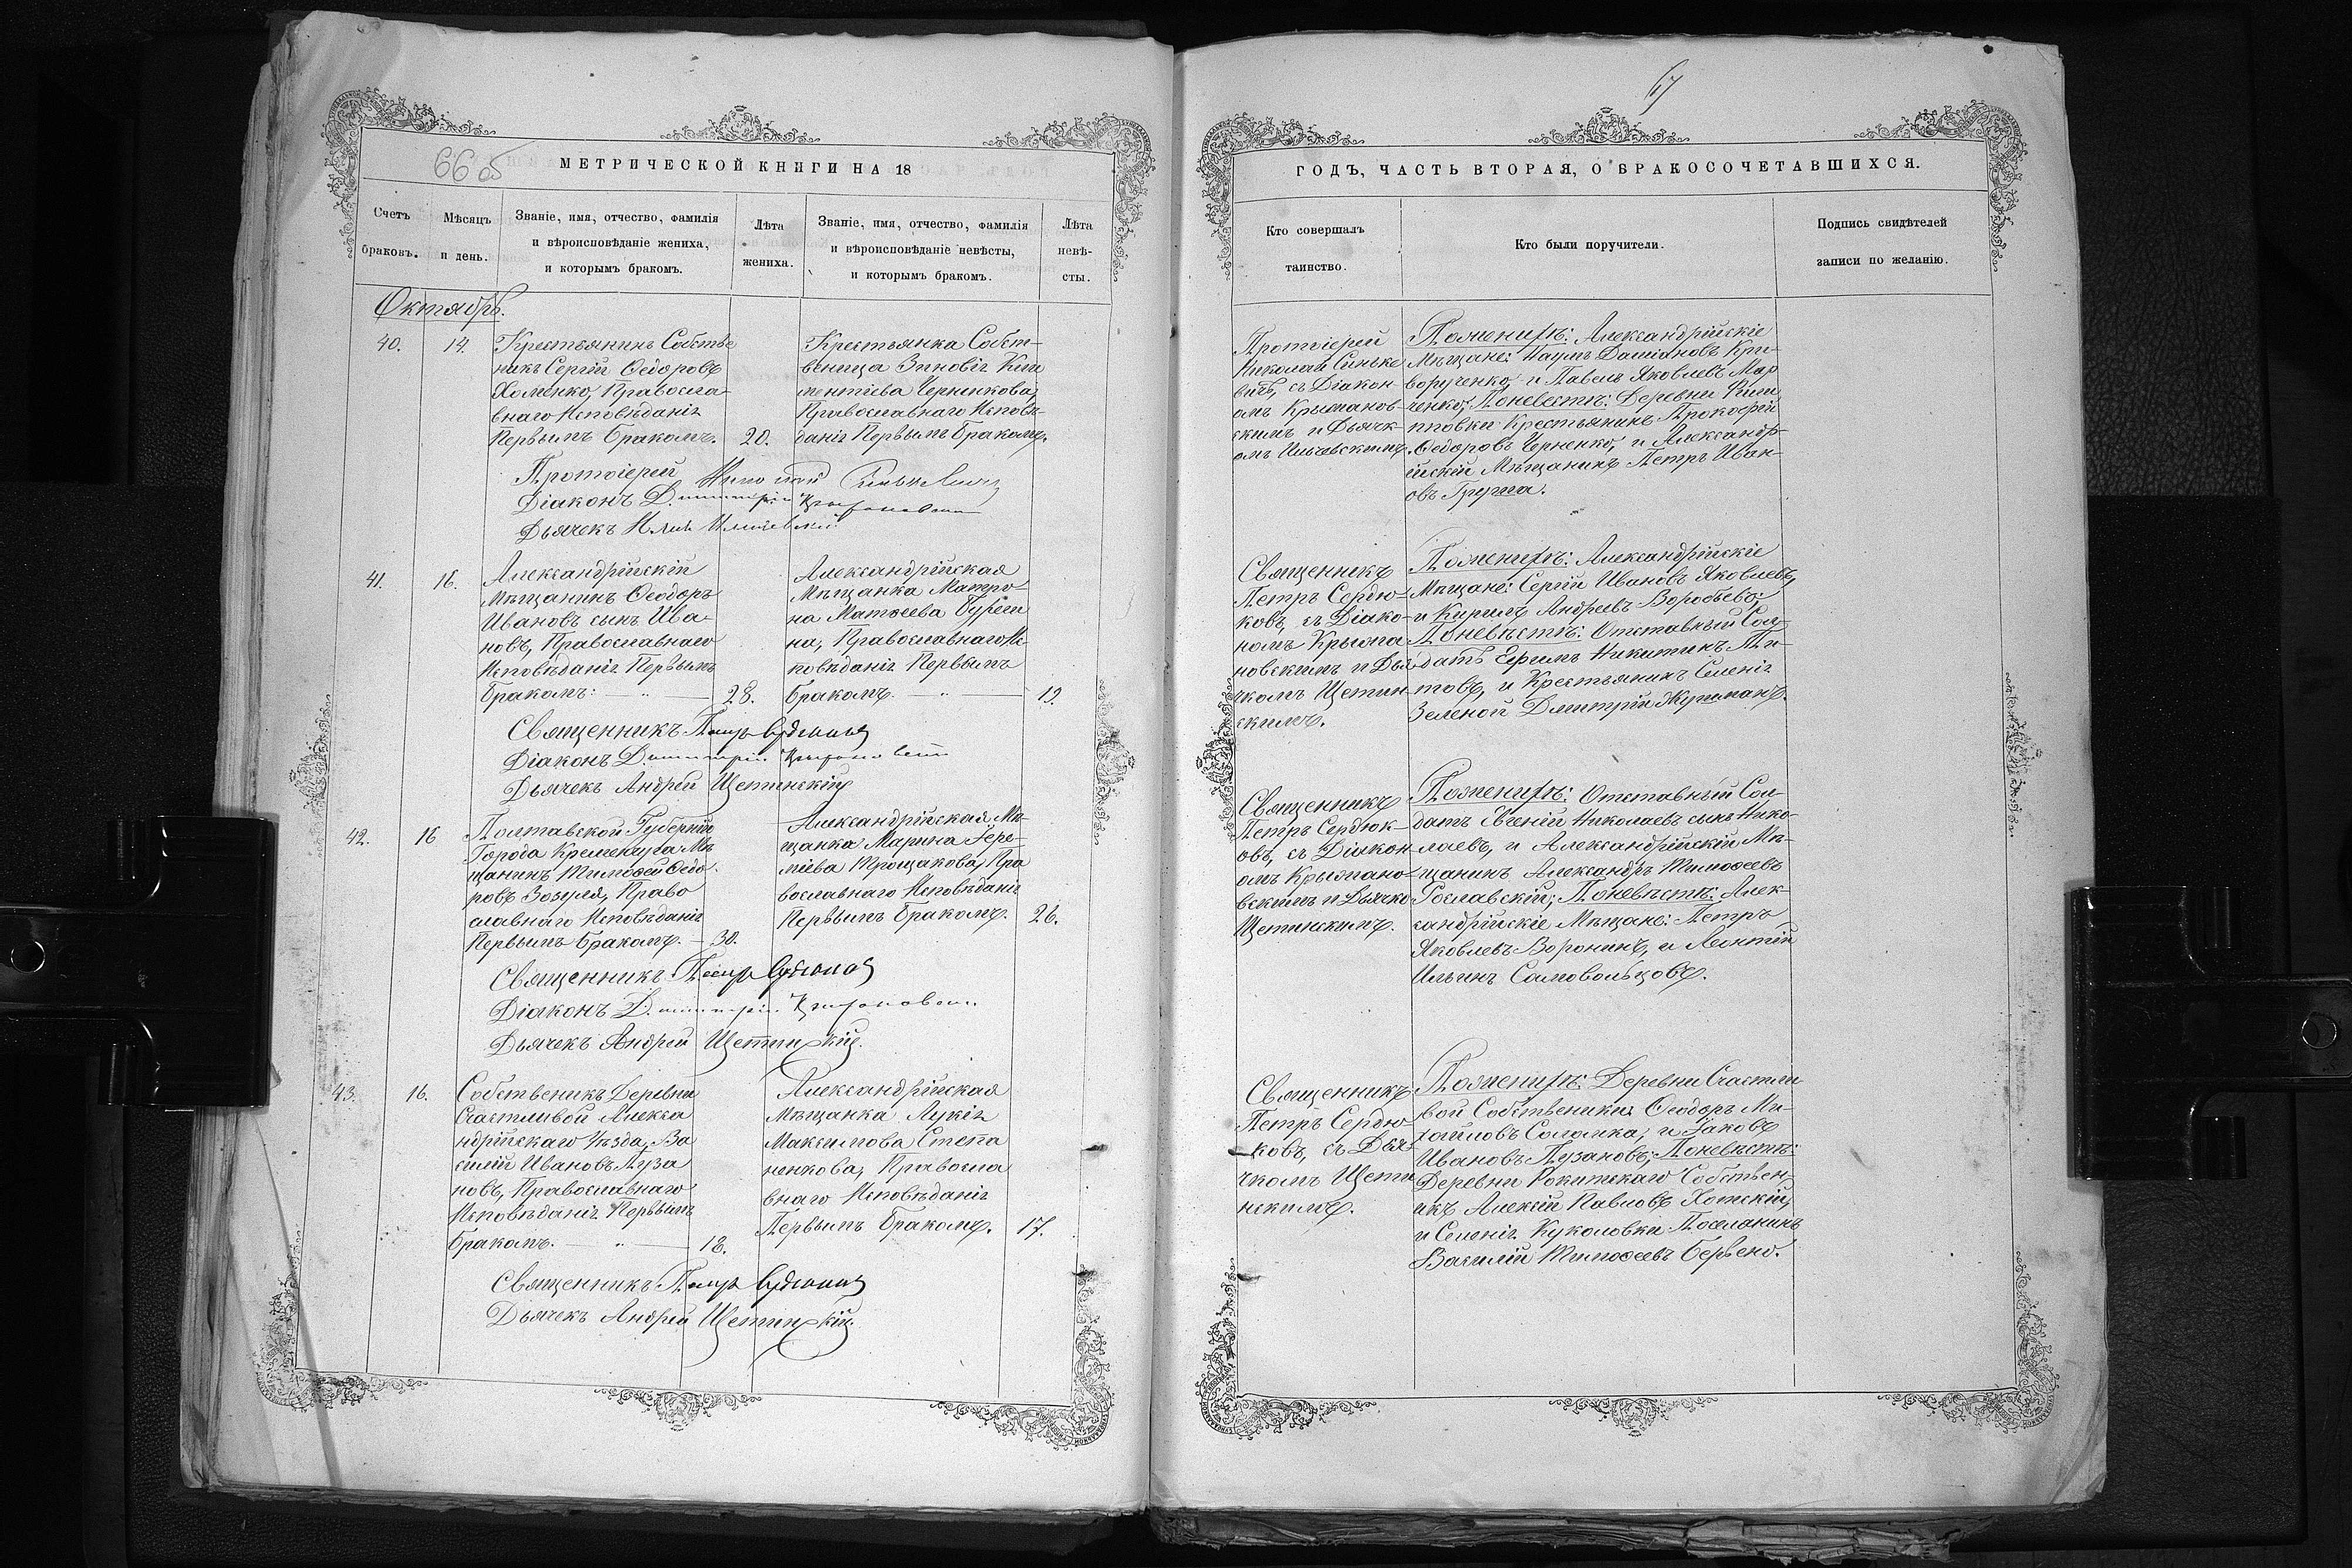 66 об
МЕТРИЧЕСКОЙ КНИГИ НА 18
Счетъ браковъ.
Мѣсяцъ и день.
Званіе, имя, отчество, фамилія
и вѣроисповѣданіе жениха,
и которымъ бракомъ.
Лѣта
жениха.
Званіе, имя, отчество, фамилія
и вѣроисповѣданіе невѣсты,
и которымъ бракомъ.
Лѣта
невѣ-
сты.
Октябрь.
40.
14.
Крестьянинъ Собстве
никъ Сергій Ѳедоровъ
Хоменко, Правосла-
внаго Исповѣданія
Первымъ бракомъ.
20.
Крестьянка Собст-
веница Зиновія Кли
ментіева Черникова,
Православнаго Исповѣ-
данія Первымъ бракомъ.
Протоіерей Николай Синькевичъ
Діаконъ Димитрій Крыжановскій
Дьячекъ
41.
16.
Александрійскій
Мѣщанинъ Ѳеодоръ
Ивановъ сынъ Ива-
новъ, Православнаго
Исповѣданія Первымъ
бракомъ: — „ —
28.
Александрійская
Мѣщанка Матро-
на Матѳеева
на, Православнаго Ис
повѣданія Первымъ
бракомъ. „ —
19.
Священникъ Петръ Сердюковъ
Діаконъ Димитрій Крыжановскій
Дьячекъ Андрей Щетинскій
42.
16
Полтавской Губерніи
Города Кременчуга Мѣ
щанинъ Тимофей Ѳедо-
ровъ Зозуля, Право
славнаго Исповѣданія
Первымъ бракомъ. —
30.
Александрійская Мѣ-
щанка Марина Іере-
міева Трощакова, Пра
вославнаго Исповѣданія
Первымъ бракомъ.
26.
Священникъ Петръ Сердюковъ
Діаконъ Димитрій Крыжановскій
Дьячекъ Андрей Щетинскій.
43.
16.
Собственикъ Деревни
Счастливой Алекса
ндрійскаго Уѣзда, Ва
силій Ивановъ Пуза
новъ, Православнаго
Исповѣданія Первымъ
бракомъ. — „ —
18.
Александрійская
Мѣщанка Лукія
Максимова Степа
ненкова, Правосла
внаго Исповѣданія
Первымъ бракомъ.
17.
Священникъ Петръ Сердюковъ
Дьячекъ Андрей Щетинскій.
67
ГОДЪ, ЧАСТЬ ВТОРАЯ, О БРАКОСОЧЕТАВШИХСЯ.
Кто совершалъ
таинство.
Кто были поручители.
Подпись свидѣтелей
записи по желанію.
Протоіерей
Николай Синьке
вичъ, съ Діакон-
омъ Крыжанов-
скимъ и Дьячк-
омъ
Поженихѣ: Александрійскіе
Мѣщане: Наумъ Даміановъ Кри-
ворученко, и Павелъ Яковлевъ Мар
ченко; Поневѣстѣ: Деревни Фили
пповки Крестьянинъ Прокофій
Ѳедоровъ Черненко, и Александр-
ійскій Мѣщанинъ Петръ Иван-
овъ Груша.
Священникъ
Петръ Сердю-
ковъ, съ Діако-
номъ Крыжа-
новскимъ и Дья-
чкомъ Щетин-
скимъ.
Поженихѣ: Александрійскіе
Мѣщане: Сергій Ивановъ Яковлевъ,
и Кирилъ Андреевъ Воробьевъ;
Поневѣстѣ: Отставный Сол-
датъ Ефимъ Никитинъ Ти-
товъ, и Крестьянинъ Селенія
Зеленой Дмитрій
Священникъ
Петръ Сердюк-
овъ, съ Діакон-
омъ Крыжано-
вскимъ и Дьячко
Щетинскимъ.
Поженихѣ: Отставный Сол-
датъ Евгеній Николаевъ сынъ Нико-
лаевъ, и Александрійскій Мѣ-
щанинъ Александръ Тимофеевъ
Рославскій; Поневѣстѣ: Алек-
сандрійскіе Мѣщане: Петръ
Яковлевъ Воронинъ, и Леонтій
Ильинъ Самовольцовъ.
Священникъ
Петръ Сердю-
ковъ, съ Дья-
чкомъ Щети
нскимъ.
Поженихѣ: Деревни Счастли
вой Собственики: Ѳеодоръ Ми-
хайловъ Саломка, и Іаковъ
Ивановъ Пузановъ; Поневѣстѣ:
Деревни Рокитскаго Собствен-
икъ Алексій Павловъ Хотскій,
и Селенія Куколовки Поселянинъ
Василій Тимофеевъ